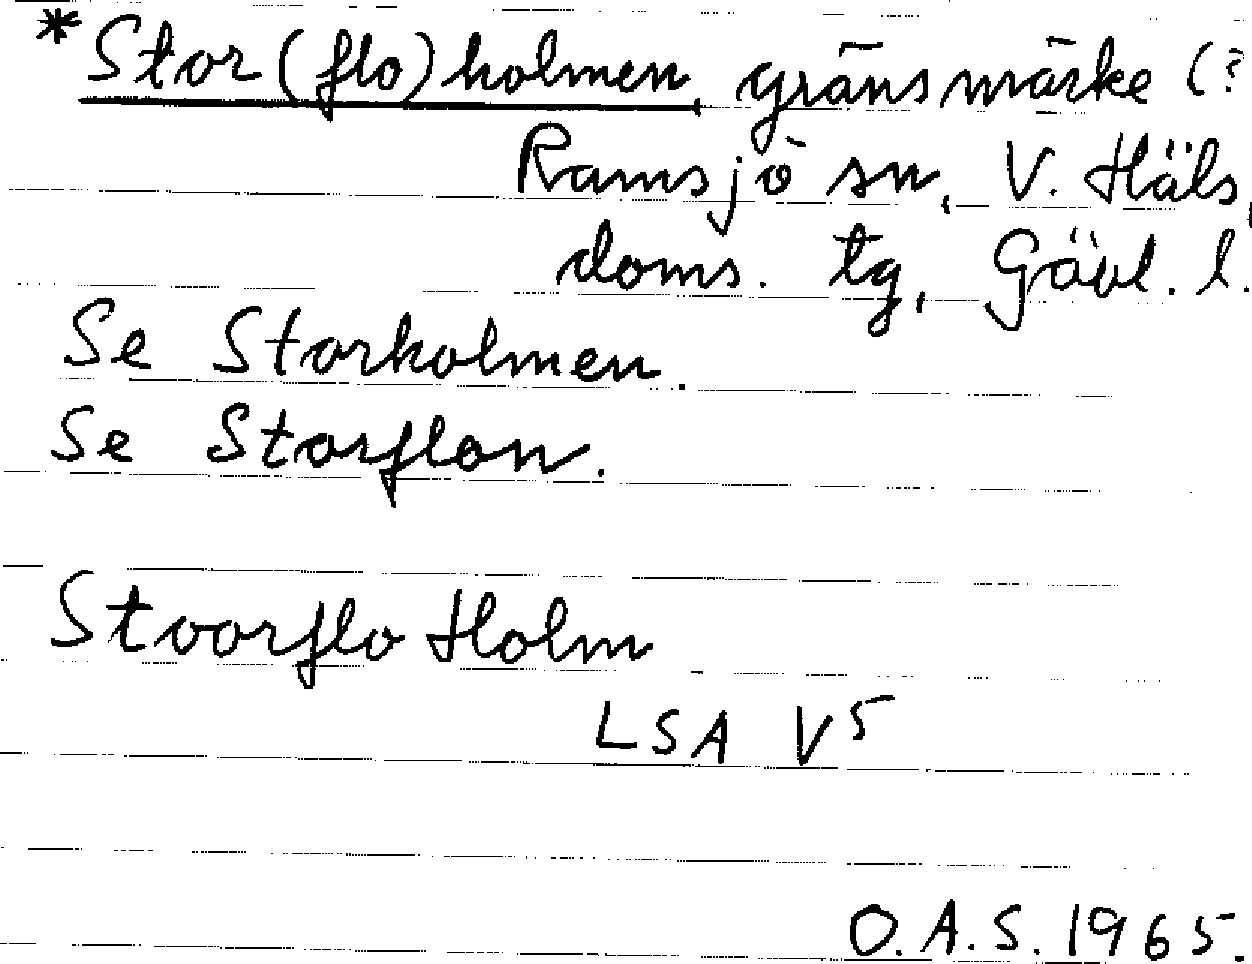 *Stor(flo)holmen, gränsmärke (?
Ramsjö sn, V. Häls,
doms. tg, Gävl. l.
Se Storholmen.
Se Storflon.
Stoorflo Holm
LSA V5
O.A.S. 1965.